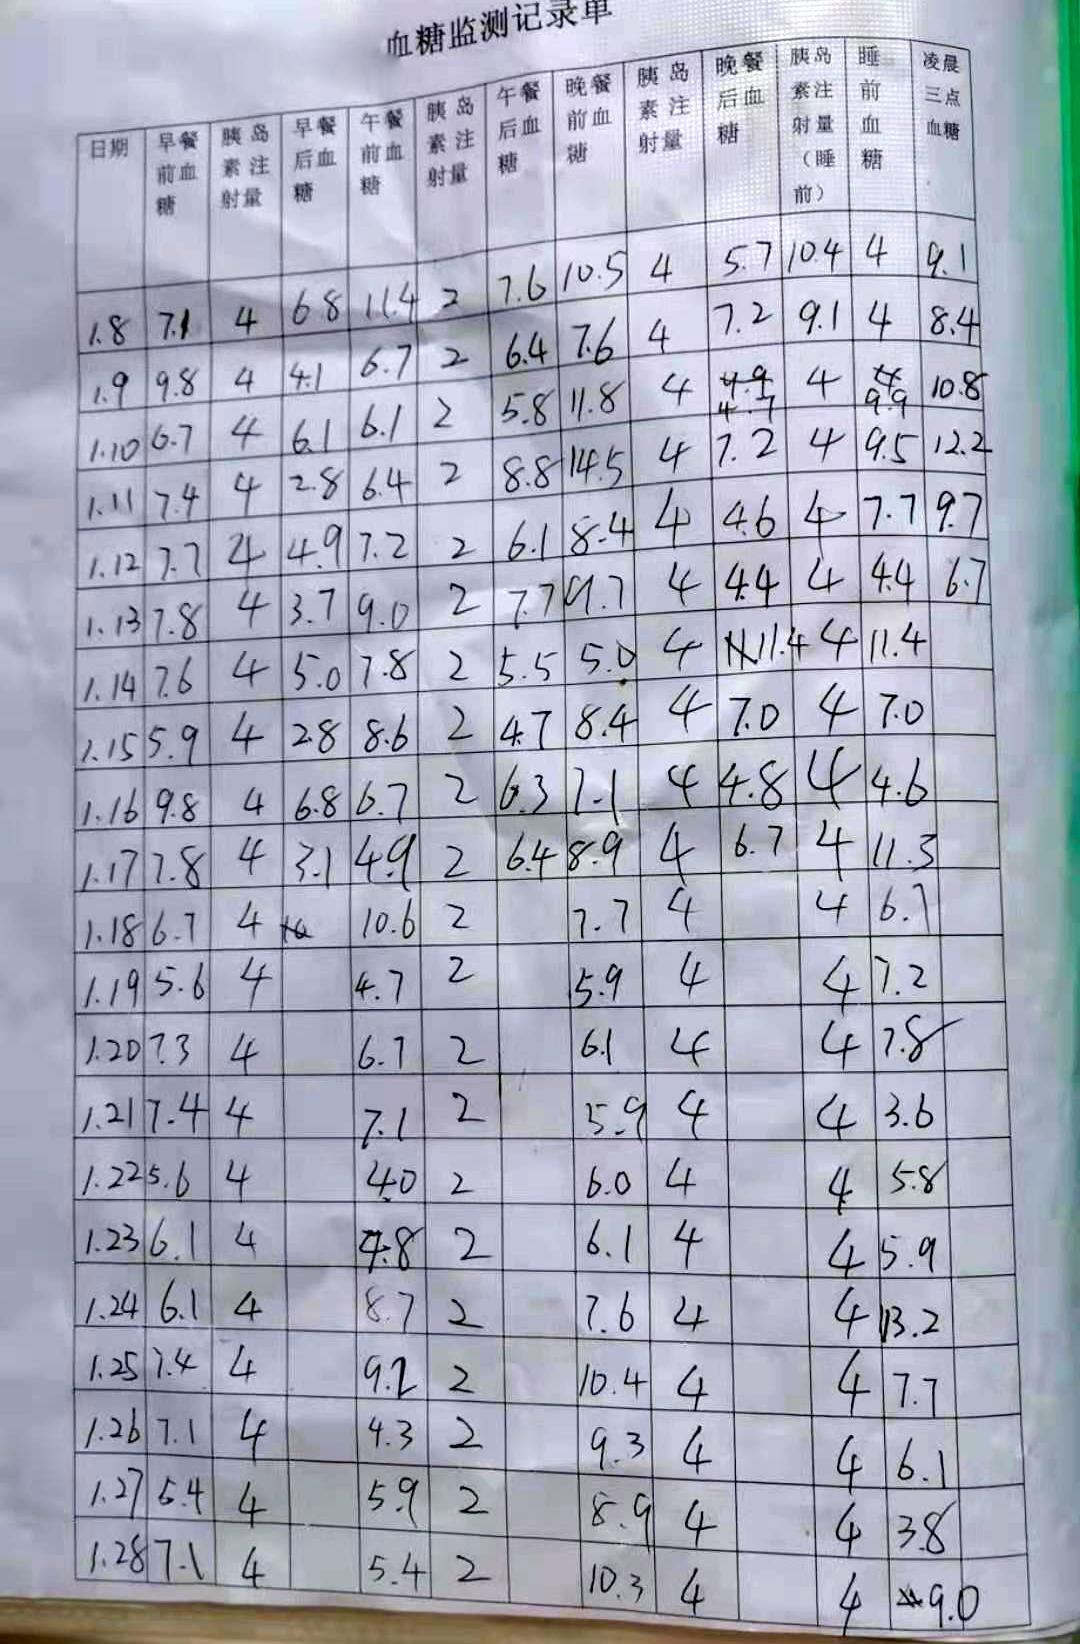 血糖监测记录单
日期 早餐前血糖 胰岛素注射量 早餐后血糖 午餐前血糖 胰岛素注射量 午餐后血糖 晚餐前血糖 胰岛素注射量 晚餐后血糖 胰岛素注射量（睡前） 睡前血糖 凌晨三点血糖
1.8 7.1 4 6.8 11.4 2 7.6 10.5 4 5.7 10.4 4 9.1
1.9 9.8 4 4.1 6.7 2 6.4 7.6 4 7.2 9.1 4 8.4
1.10 6.7 4 6.1 6.1 2 5.8 11.8 4 4 9.9 10.8
1.11 7.4 4 2.8 6.4 2 8.8 14.5 4 7.2 4 9.5 12.2
1.12 7.7 4 4.9 7.2 2 6.1 8.4 4 4.6 4 7.7 9.7
1.13 7.8 4 3.7 9.0 2 7.7 9.7 4 4.4 4 4.4 6.7
1.14 7.6 4 5.0 7.8 2 5.5 5.0 4 11.4 4 11.4
1.15 5.9 4 2.8 8.6 2 4.7 8.4 4 7.0 4 7.0
1.16 9.8 4 6.8 6.7 2 6.3 7.1 4 4.8 4 4.6
1.17 7.8 4 3.1 4.9 2 6.4 8.9 4 6.7 4 11.3
1.18 6.7 4 10.6 2 7.7 4 4 6.7
1.19 5.6 4 4.7 2 5.9 4 4 7.2
1.20 7.3 4 6.7 2 6.1 4 4 7.8
1.21 7.4 4 7.1 2 5.9 4 4 3.6
1.22 5.6 4 4.0 2 6.0 4 4 5.8
1.23 6.1 4 4.8 2 6.1 4 4 5.9
1.24 6.1 4 8.7 2 7.6 4 4 13.2
1.25 7.4 4 9.2 2 10.4 4 4 7.7
1.26 7.1 4 4.3 2 9.3 4 4 6.1
1.27 5.4 4 5.9 2 8.9 4 4 3.8
1.28 7.1 4 5.4 2 10.3 4 4 9.0